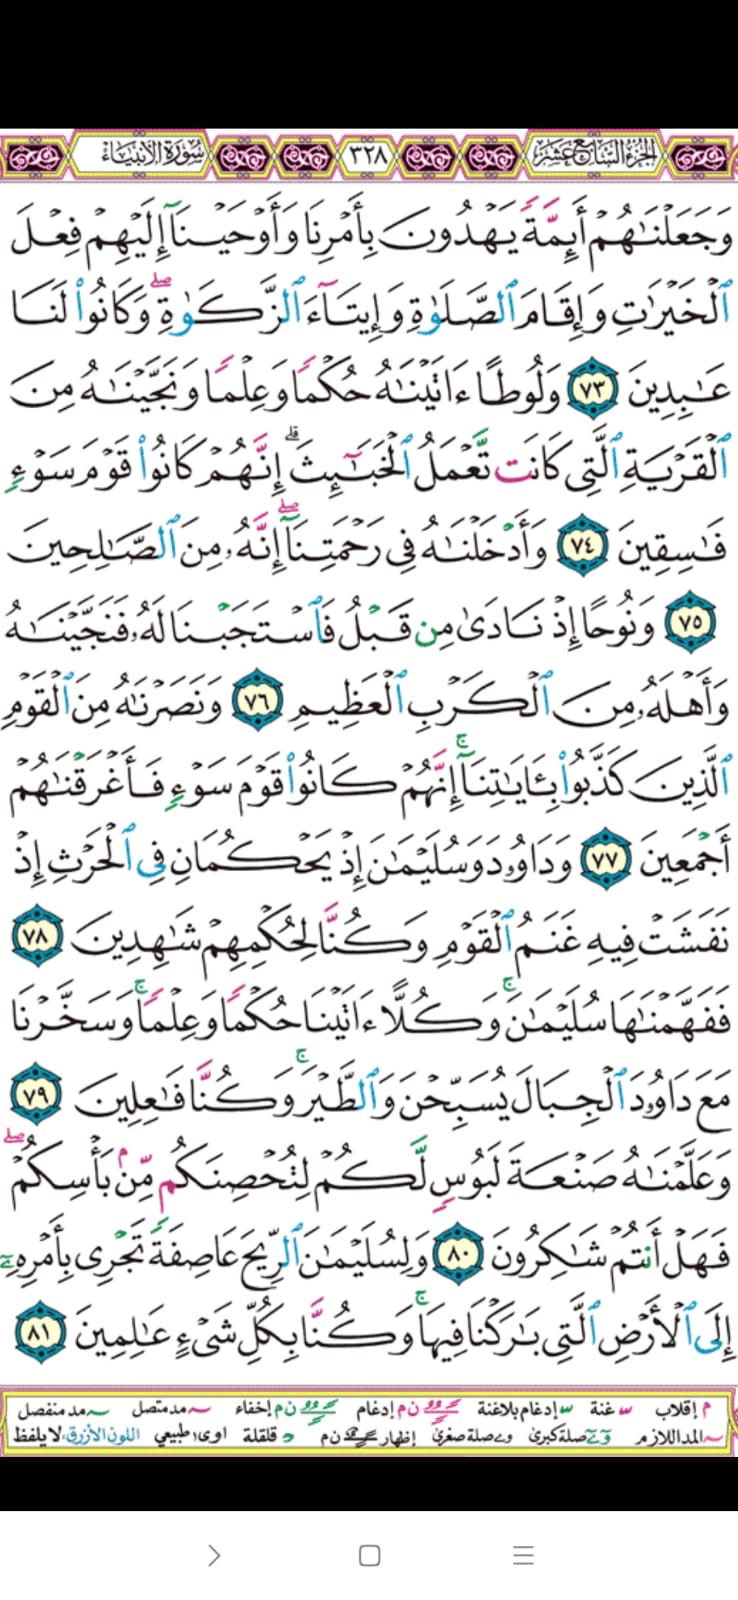 الجزء السابع عشر ٣٢٨ سورة الأنبياء
وَجَعَلْنَٰهُمْ أَئِمَّةً يَهْدُونَ بِأَمْرِنَا وَأَوْحَيْنَآ إِلَيْهِمْ فِعْلَ
ٱلْخَيْرَٰتِ وَإِقَامَ ٱلصَّلَوٰةِ وَإِيتَآءَ ٱلزَّكَوٰةِۖ وَكَانُوا۟ لَنَا
عَٰبِدِينَ ٧٣ وَلُوطًا ءَاتَيْنَٰهُ حُكْمًا وَعِلْمًا وَنَجَّيْنَٰهُ مِنَ
ٱلْقَرْيَةِ ٱلَّتِى كَانَت تَّعْمَلُ ٱلْخَبَٰٓئِثَۗ إِنَّهُمْ كَانُوا۟ قَوْمَ سَوْءٍ
فَٰسِقِينَ ٧٤ وَأَدْخَلْنَٰهُ فِى رَحْمَتِنَآۖ إِنَّهُۥ مِنَ ٱلصَّٰلِحِينَ
٧٥ وَنُوحًا إِذْ نَادَىٰ مِن قَبْلُ فَٱسْتَجَبْنَا لَهُۥ فَنَجَّيْنَٰهُ
وَأَهْلَهُۥ مِنَ ٱلْكَرْبِ ٱلْعَظِيمِ ٧٦ وَنَصَرْنَٰهُ مِنَ ٱلْقَوْمِ
ٱلَّذِينَ كَذَّبُوا۟ بِـَٔايَٰتِنَآۚ إِنَّهُمْ كَانُوا۟ قَوْمَ سَوْءٍ فَأَغْرَقْنَٰهُمْ
أَجْمَعِينَ ٧٧ وَدَاوُۥدَ وَسُلَيْمَٰنَ إِذْ يَحْكُمَانِ فِى ٱلْحَرْثِ إِذْ
نَفَشَتْ فِيهِ غَنَمُ ٱلْقَوْمِ وَكُنَّا لِحُكْمِهِمْ شَٰهِدِينَ ٧٨
فَفَهَّمْنَٰهَا سُلَيْمَٰنَۚ وَكُلًّا ءَاتَيْنَا حُكْمًا وَعِلْمًاۚ وَسَخَّرْنَا
مَعَ دَاوُۥدَ ٱلْجِبَالَ يُسَبِّحْنَ وَٱلطَّيْرَۚ وَكُنَّا فَٰعِلِينَ ٧٩
وَعَلَّمْنَٰهُ صَنْعَةَ لَبُوسٍ لَّكُمْ لِتُحْصِنَكُم مِّنۢ بَأْسِكُمْۖ
فَهَلْ أَنتُمْ شَٰكِرُونَ ٨٠ وَلِسُلَيْمَٰنَ ٱلرِّيحَ عَاصِفَةً تَجْرِى بِأَمْرِهِۦٓ
إِلَى ٱلْأَرْضِ ٱلَّتِى بَٰرَكْنَا فِيهَاۚ وَكُنَّا بِكُلِّ شَىْءٍ عَٰلِمِينَ ٨١
م إقلاب غنة إدغام بلاغنة ن م إدغام ن م إخفاء مد متصل مد منفصل
المد اللازم صلة كبرى صلة صغرى إظهار ن م قلقلة اوى طبيعي اللون الأزرق: لا يلفظ